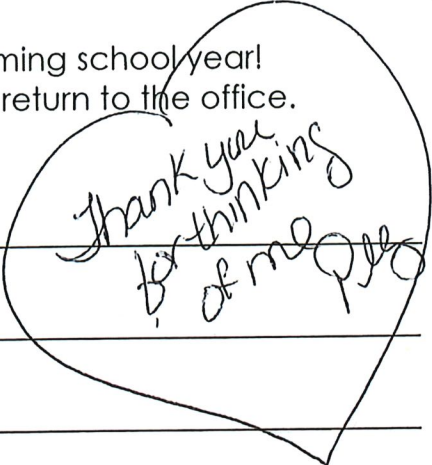 ming school year!
return to the office.
Thank you
for thinking
of me
Peg